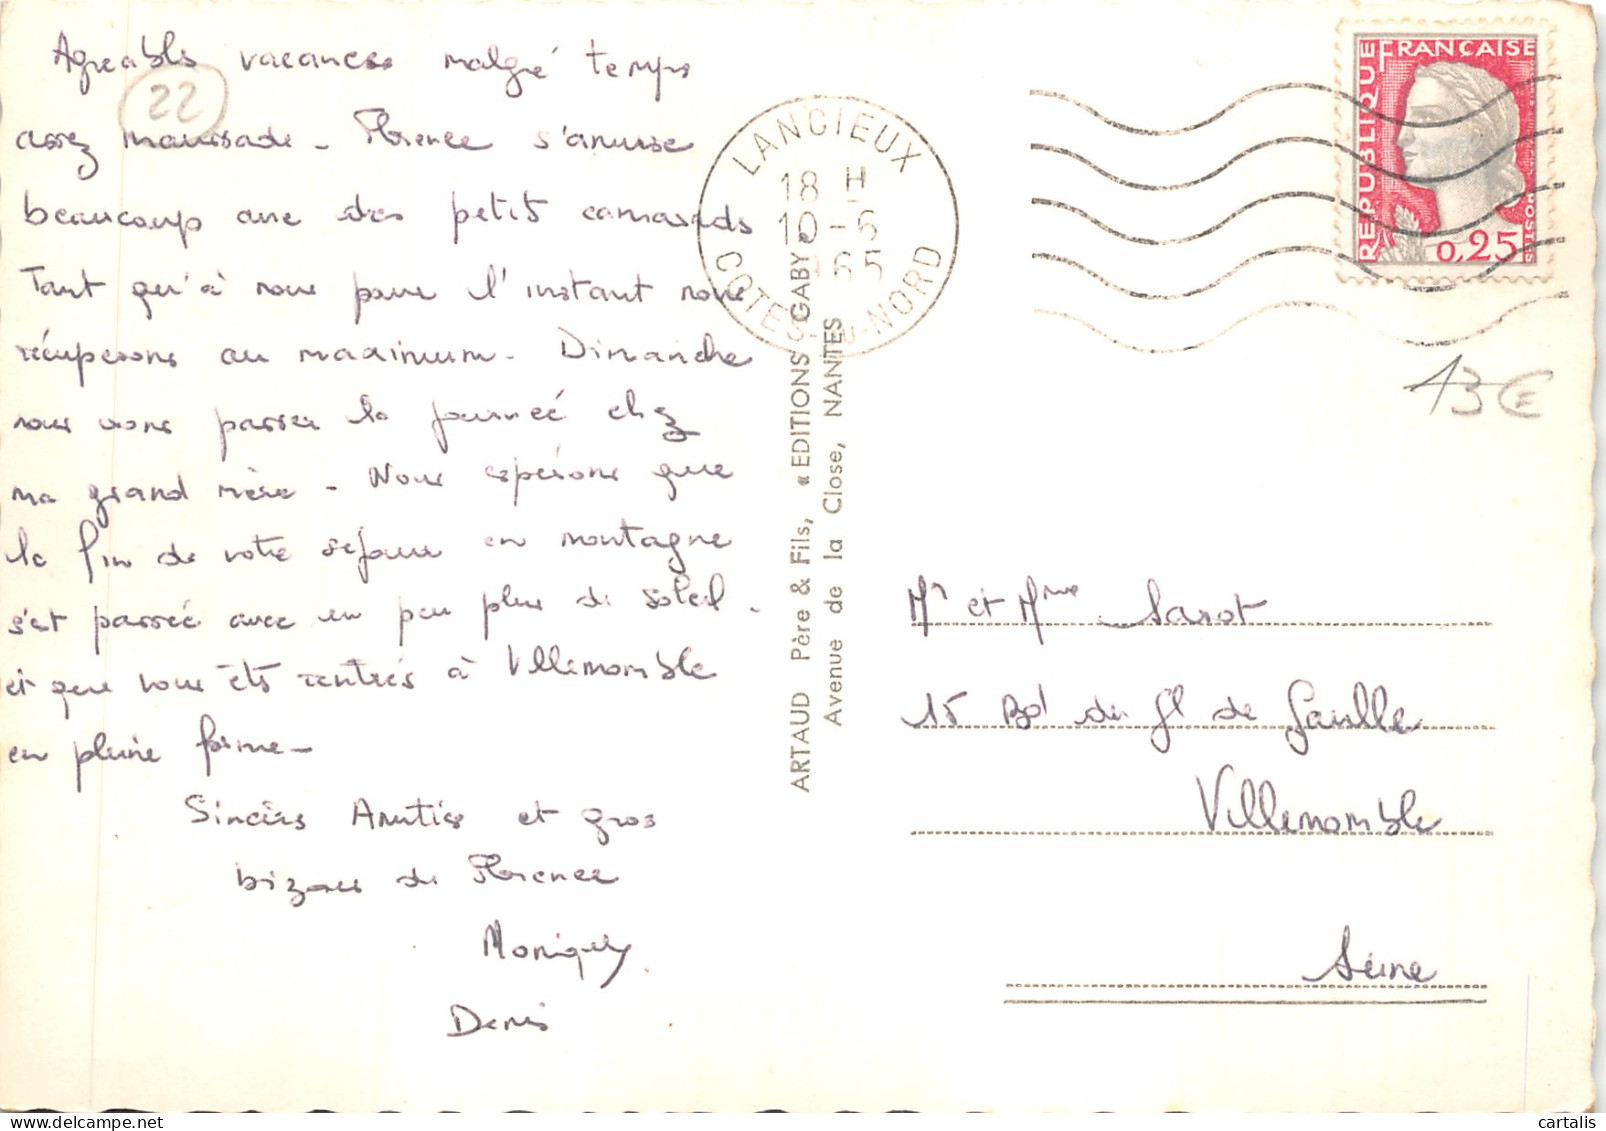 Agréable vacances malgré temps
assez maussade - Florence s'amuse
beaucoup avec des petits camarads
Tant qu'à nous pour l'instant nous
récupérons au maximum - Dimanche
nous irons passer la journée chez
ma grand mère - Nous espérons que
la fin de votre séjour en montagne
s'est passée avec un peu plus de soleil -
et que vous êts rentrés à Villemomble
en pleine forme -
Sincèrs Amitiés et gros
bizoux de Florence
Monique
Denis
22
LANCIEUX
18 H
10-6
1965
COTES-DU-NORD
ARTAUD Père & Fils, « EDITIONS GABY »
Avenue de la Close, NANTES
REPUBLIQUE FRANÇAISE
0,25
13 €
Mr et Mme Sarot
15 Bd du Gl de Gaulle
Villemomble
Seine
cartalis